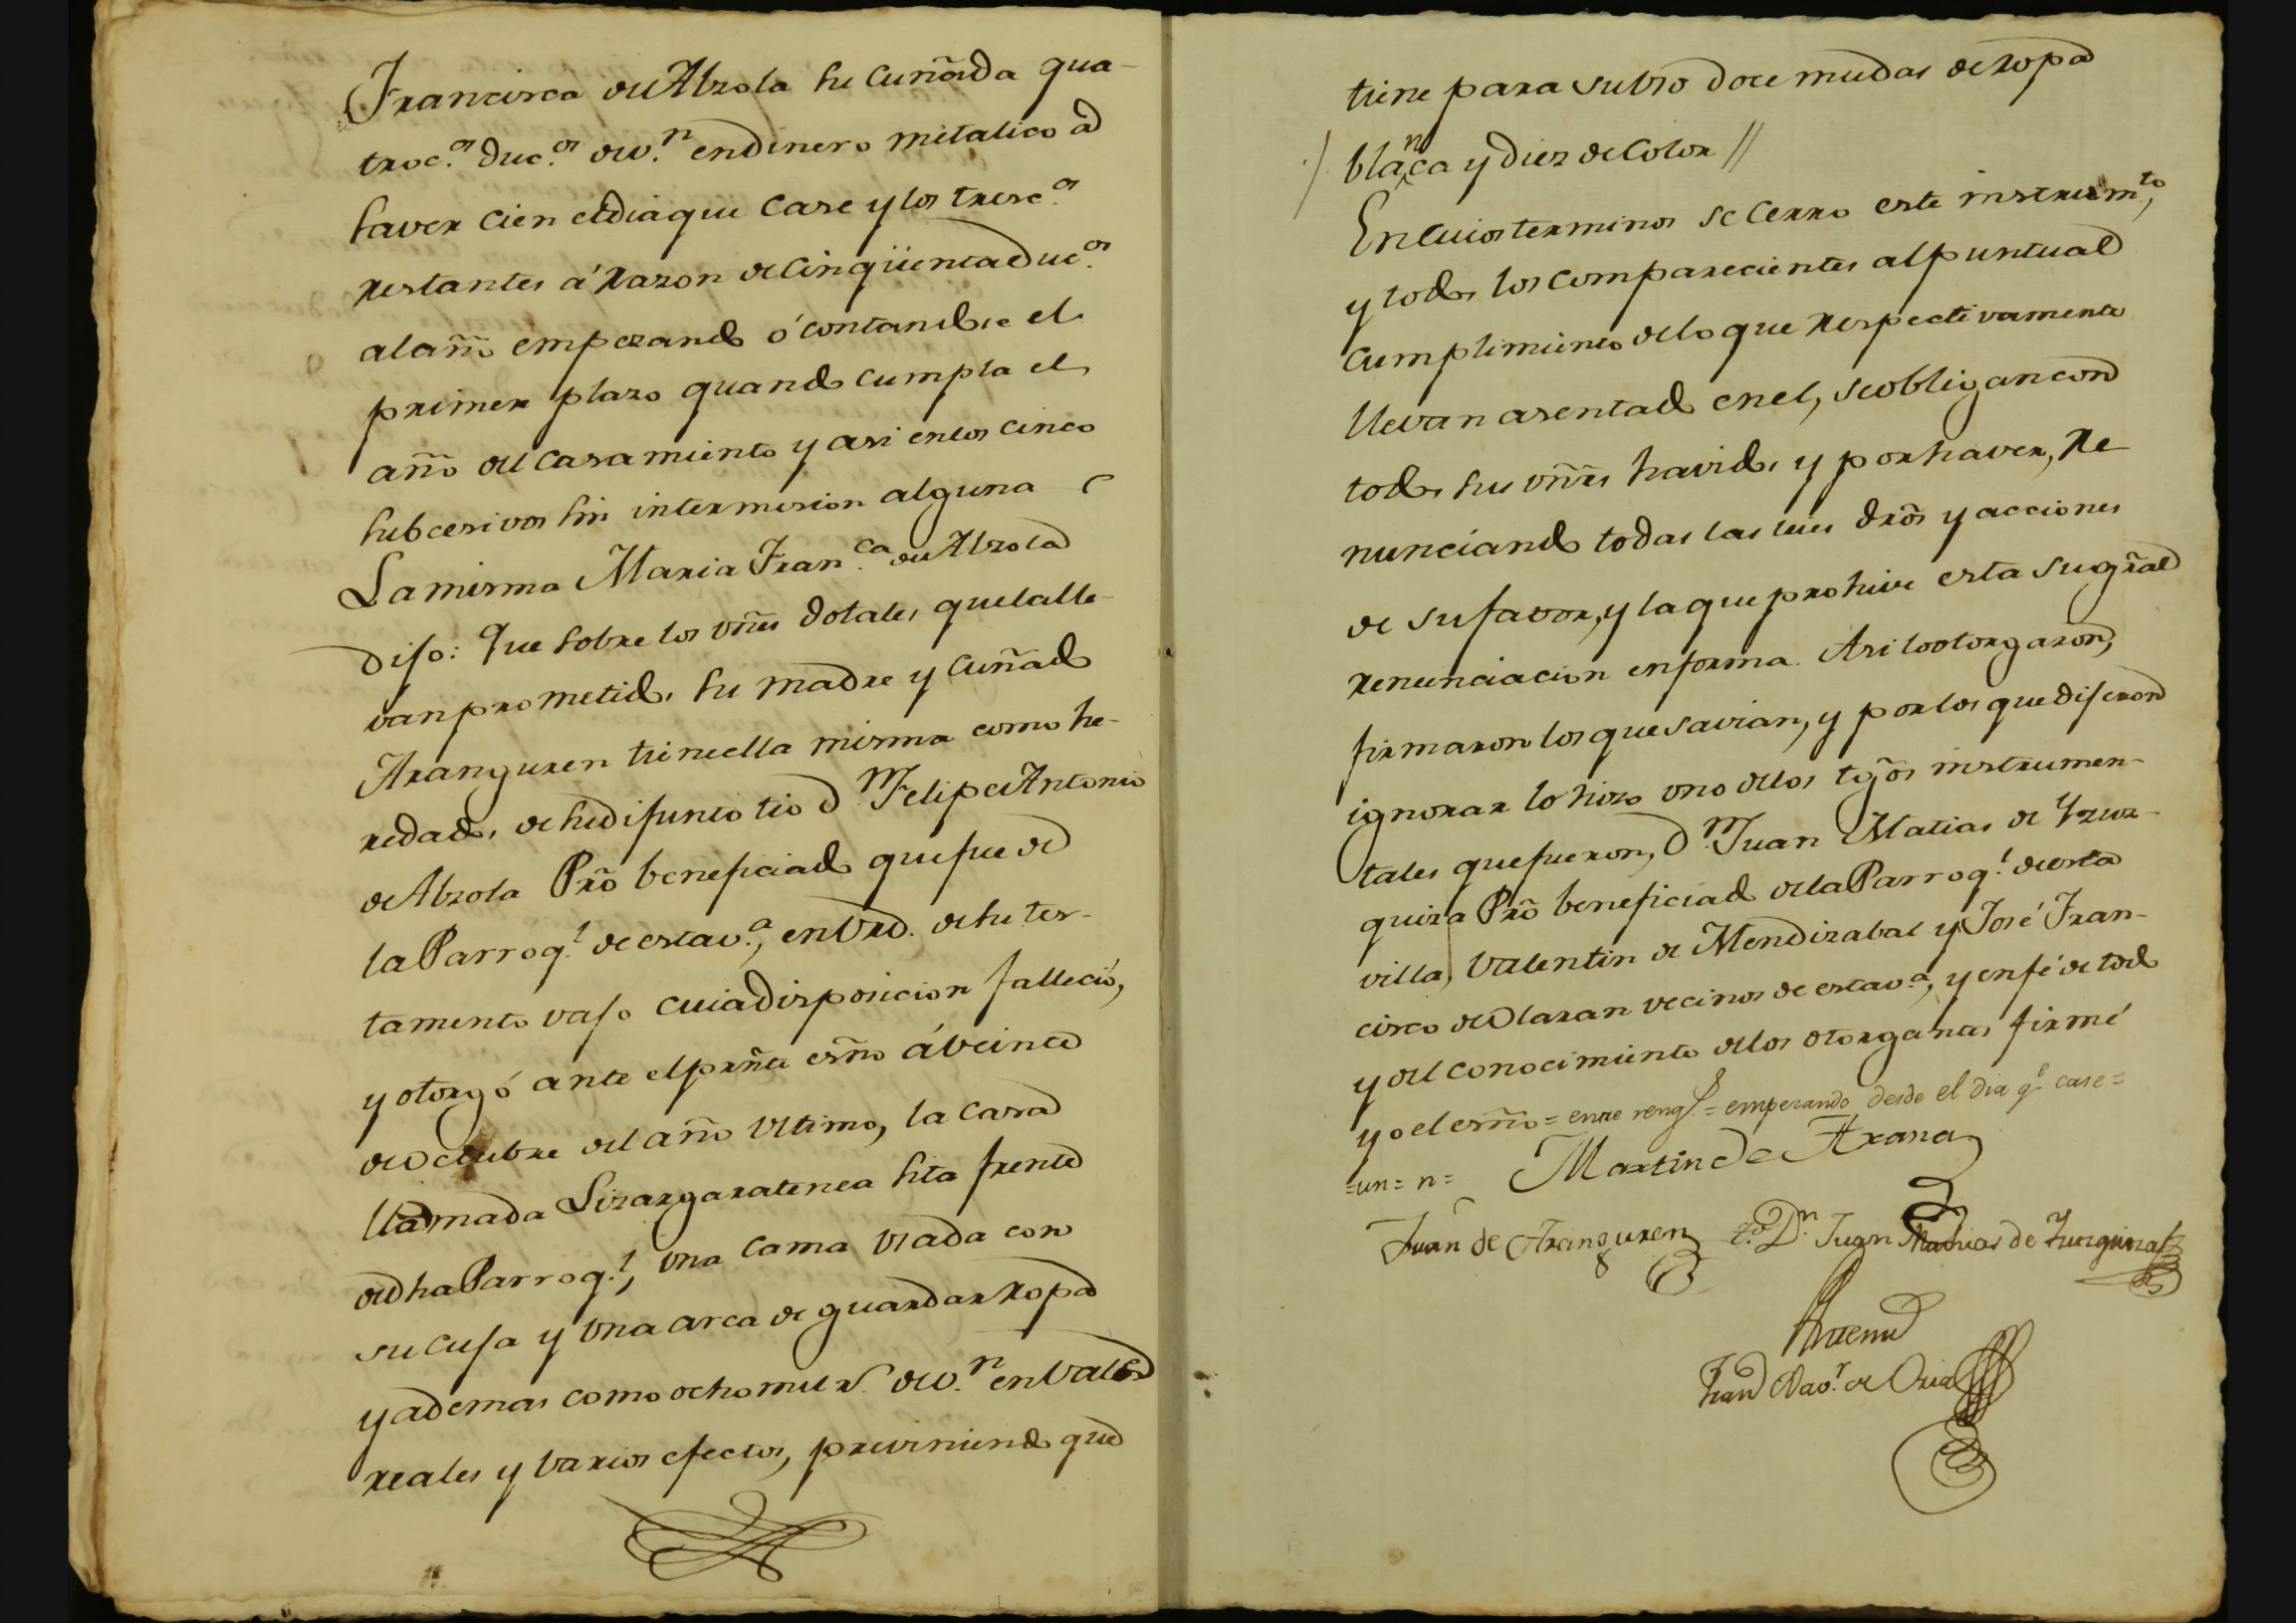 Francisca de Abzola su cuñada qua-
troc.os duc.os de v.n en dinero metalico a
saver cien el dia que case y los tresc.os
restantes á razon de cinqüenta duc.os
al año empezando ó contandose el
primer plazo quando cumpla el
año del casamiento y asi en los cinco
subcesivos sin intermision alguna
La misma Maria Fran.ca de Abzola
Dijo: Que sobre los vñes dotales que la lle-
van prometidos su madre y cuñado
Aranguren tiene ella misma como he-
redados de su difunto tio D.n Felipe Antonio
de Abzola Pro beneficiado que fue de
la Parroq.l de esta v.a, en Vrd. de su tes-
tamento vajo cuia disposicion falleció,
y otorgó ante el prñte esño á veinte
de Octubre del año ultimo, la casa
llamada Lizargaratenea sita frente
de dha Parroq.l, una cama usada con
su cuja y una arca de guardar ropa
y ademas como ocho mil rs. de v.n en vales
reales y varios efectos, previniendo que
tiene para su uso doce mudas de ropa
blanca y diez de color //
En cuios terminos se cerro este instrum.to,
y todos los comparecientes al puntual
cumplimiento de lo que respectivamente
llevan asentado en el, se obligan con
todos sus vñes havidos y por haver, re
nunciando todas las leies dros y acciones
de su favor, y la que prohive esta su gral
renunciacion en forma. Asi lo otorgaron,
firmaron los que savian, y por los que dijeron
ignorar lo hizo uno de los tgos instrumen-
tales que fueron, D.n Juan Matias de Yzur-
quiza Pro beneficiado de la Parroq.l de esta
villa, Valentin de Mendizabal y José Fran-
cisco de Olaran vecinos de esta v.a, y en fé de todo
y del conocimiento de los otorgantes firmé
yo el esño = entre rengs. = empezando desde el dia q.e case =
=un= n= Martin de Arana
Juan de Aranguren t.o D.n Juan Mathias de Zurquiza
Antemi
Fran.co Xav.r de Oria